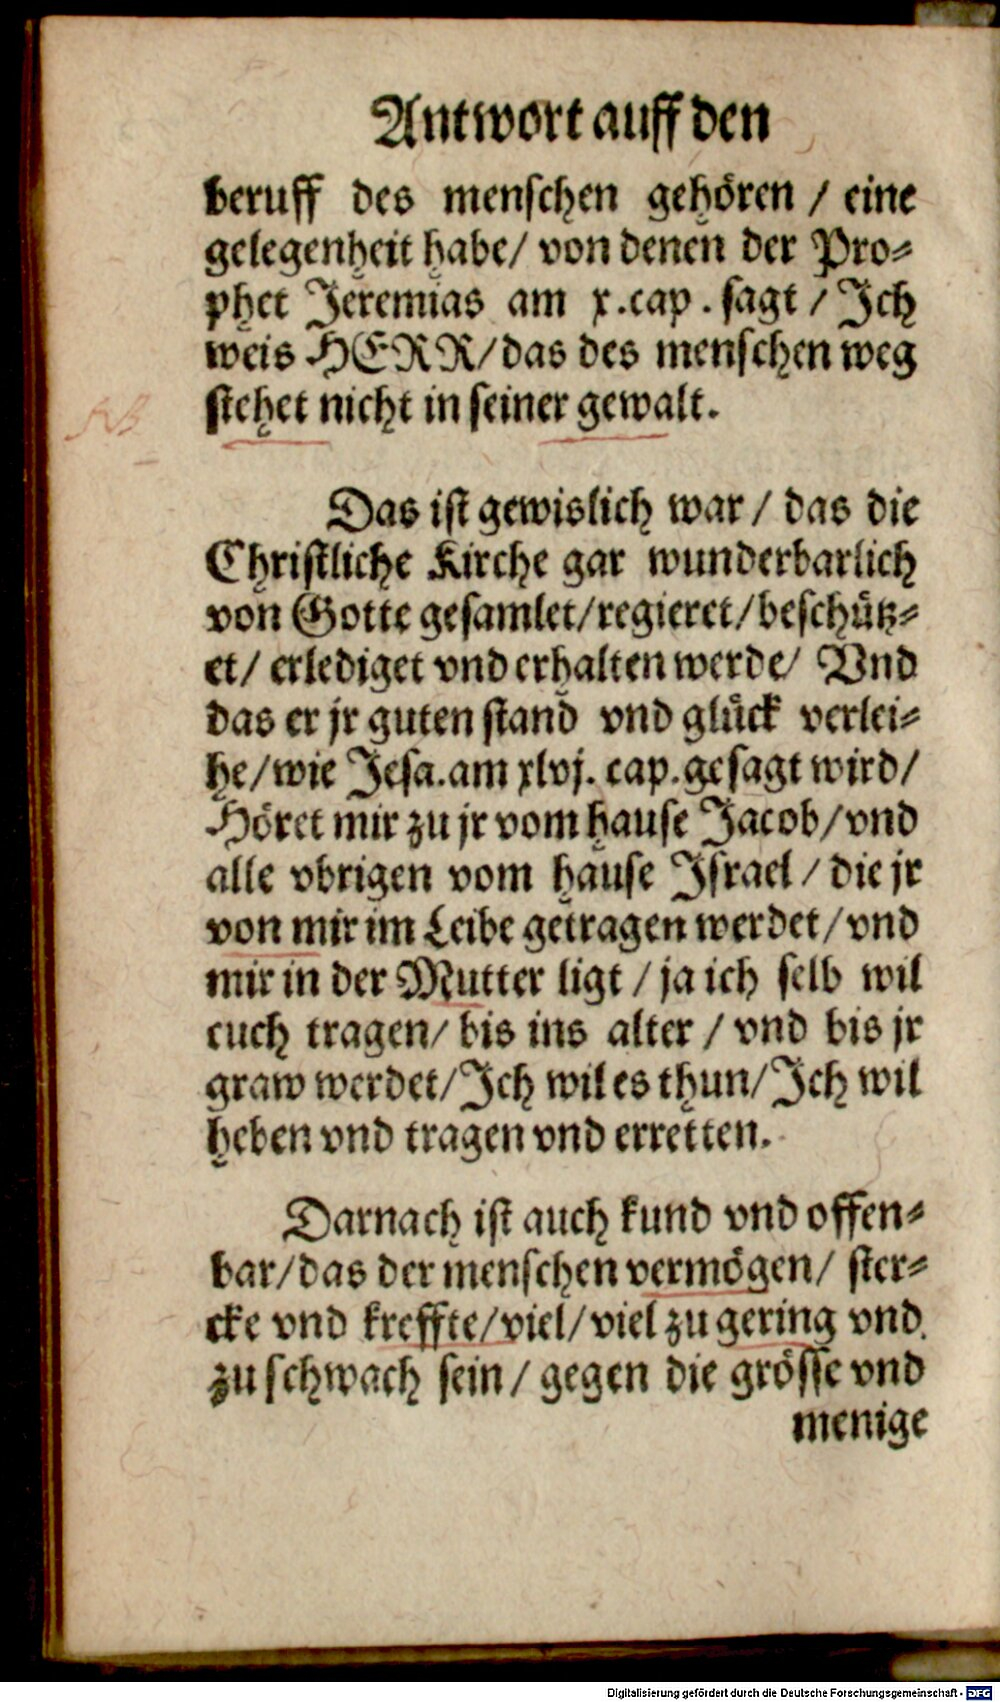 Antwort auff den
beruff des menschen gehören / eine
gelegenheit habe / von denen der Pro⸗
phet Jeremias am x. cap. sagt / Jch
weis HERR / das des menschen weg
stehet nicht in seiner gewalt.
Das ist gewislich war / das die
Christliche Kirche gar wunderbarlich
von Gotte gesamlet / regieret / beschütz⸗
et / erlediget vnd erhalten werde / Vnd
das er jr guten stand vnd glück verlei⸗
he / wie Jesa. am xlvj. cap. gesagt wird /
Höret mir zu jr vom hause Jacob / vnd
alle vbrigen vom hause Jsrael / die jr
von mir im Leibe getragen werdet / vnd
mir in der Mutter ligt / ja ich selb wil
euch tragen / bis ins alter / vnd bis jr
graw werdet / Jch wil es thun / Jch wil
heben vnd tragen vnd erretten.
Darnach ist auch kund vnd offen⸗
bar / das der menschen vermögen / ster⸗
cke vnd kreffte / viel / viel zu gering vnd
zu schwach sein / gegen die grösse vnd
menige
Digitalisierung gefördert durch die Deutsche Forschungsgemeinschaft - DFG